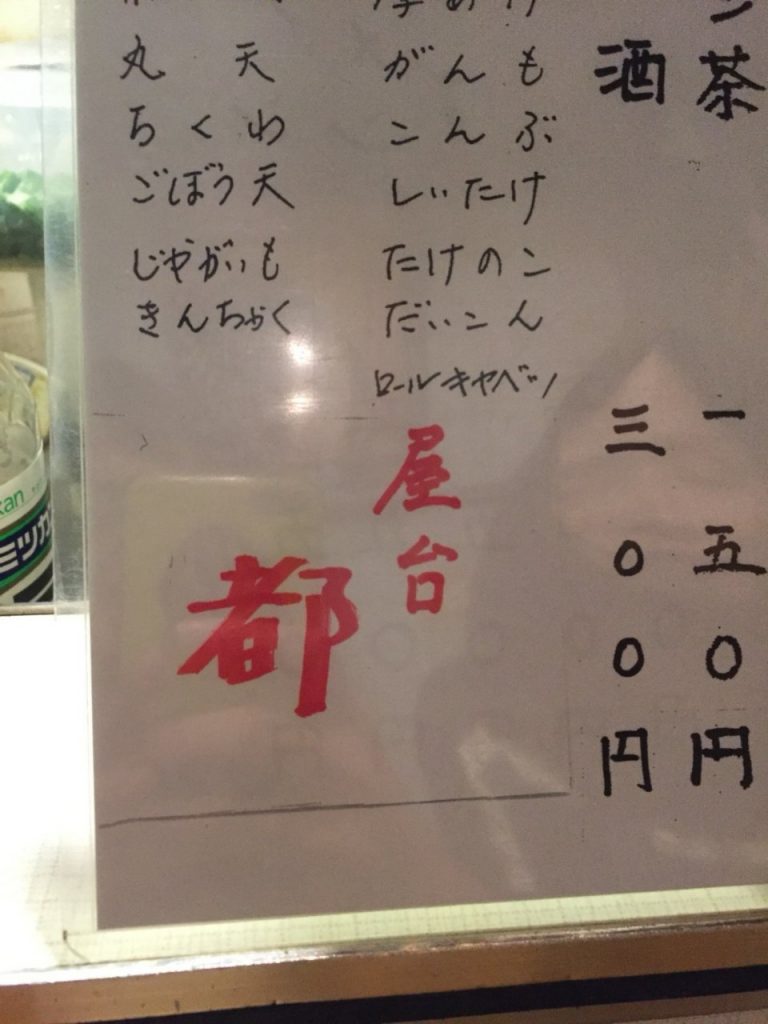 丸天
ちくわ
ごぼう天
じゃがいも
きんちゃく
がんも
こんぶ
しいたけ
たけのこ
だいこん
ロールキャベツ
屋台
都
酒
三〇〇円
茶
一五〇円
kan
ミツカ